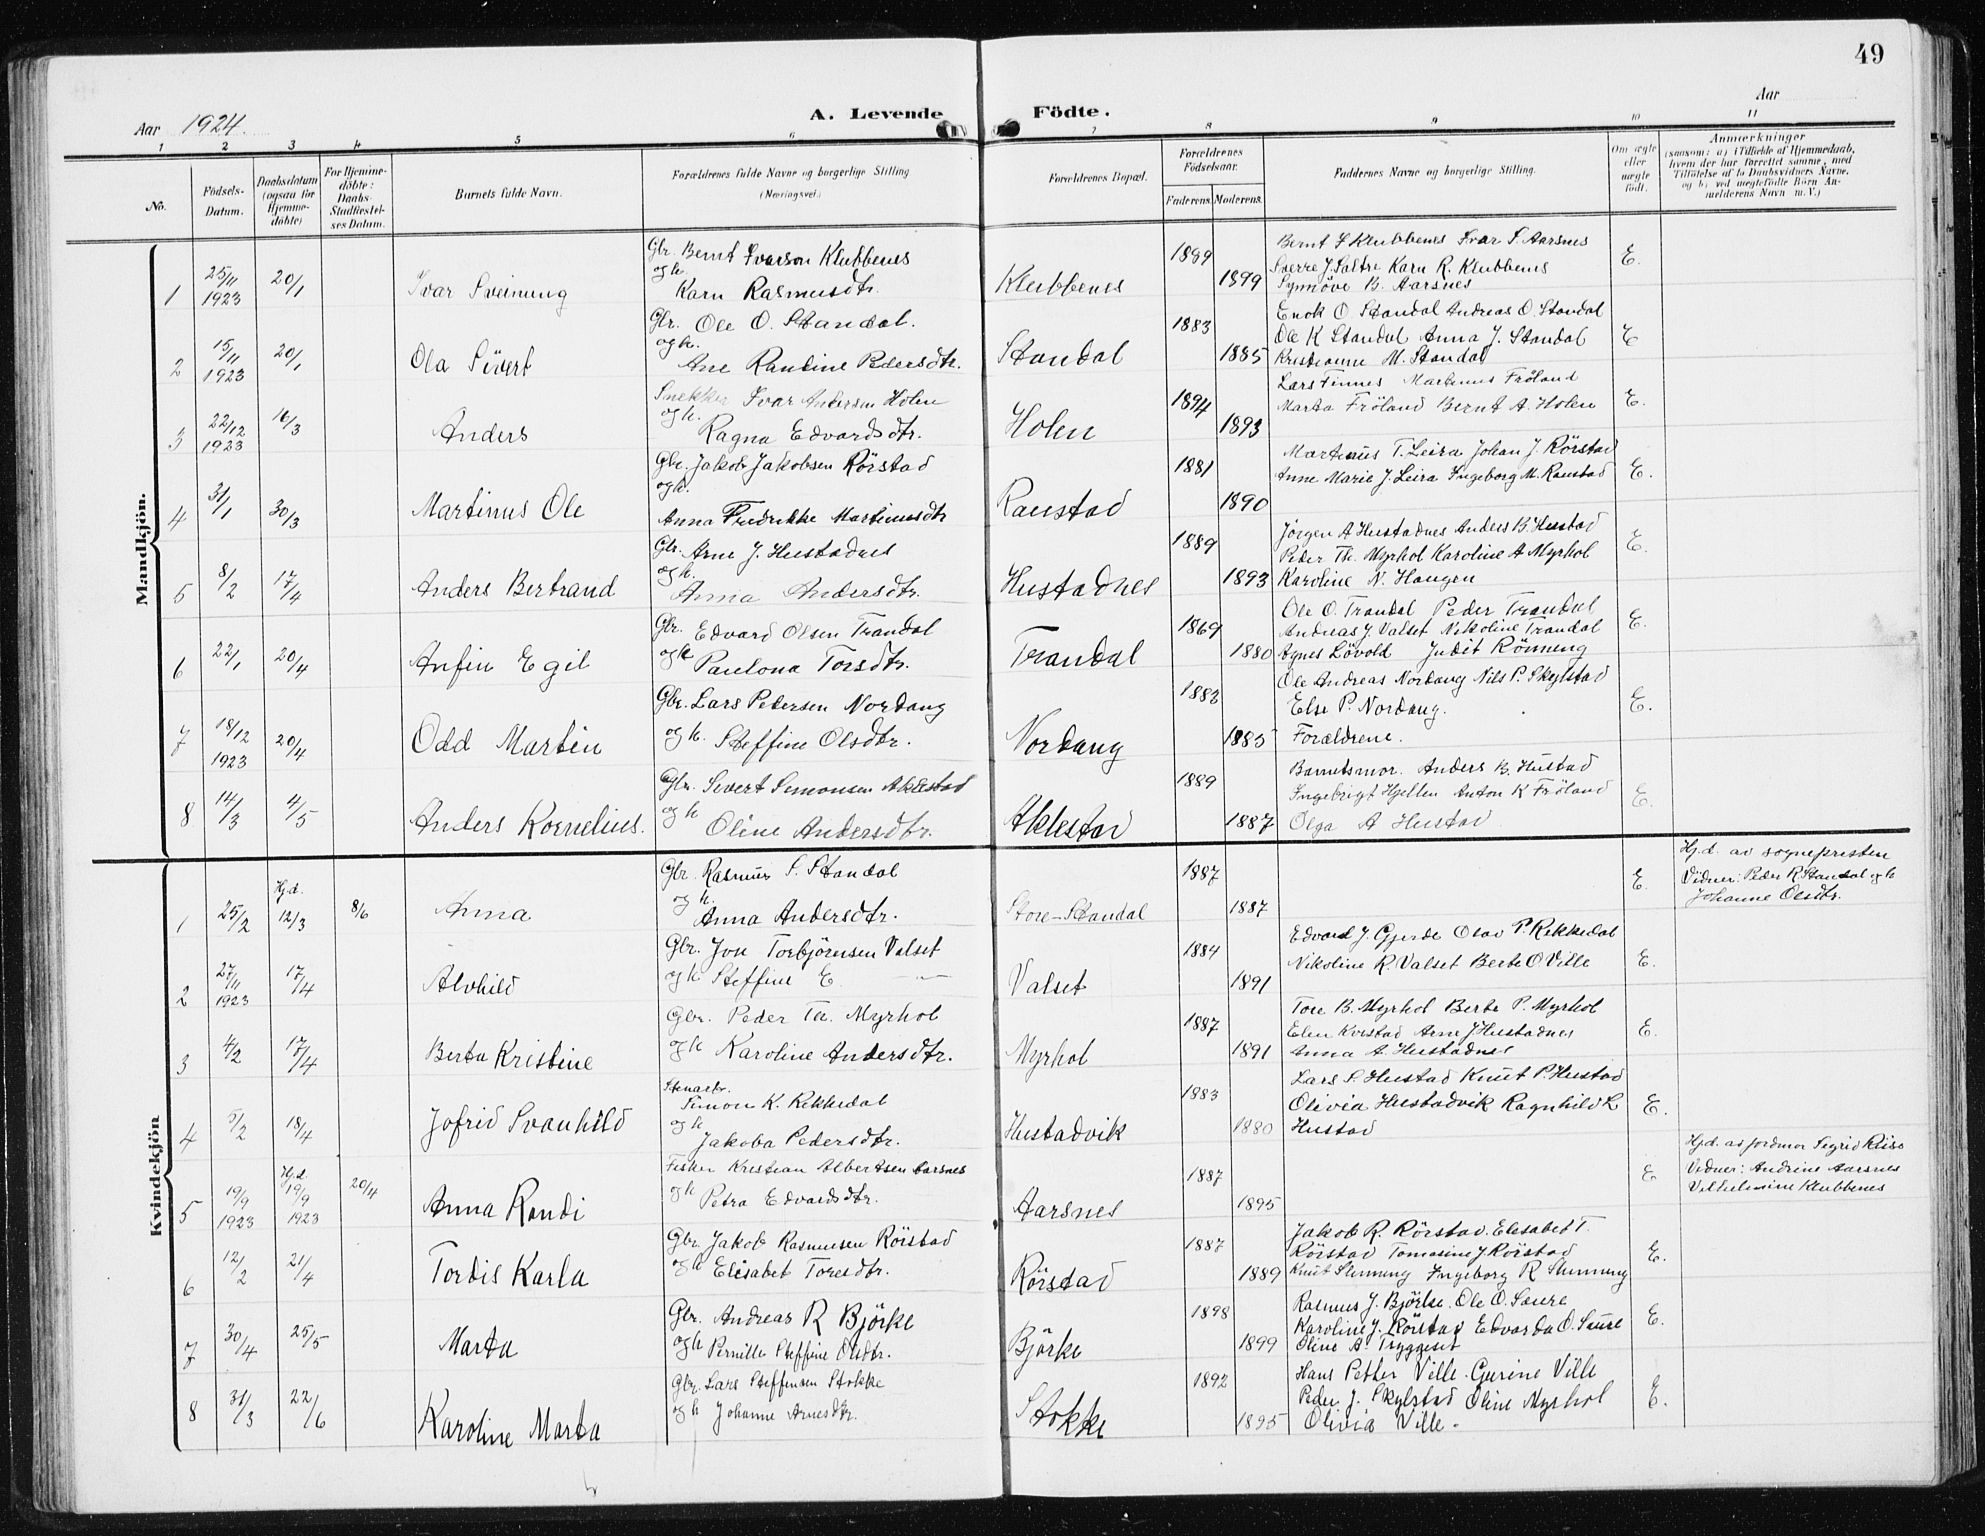 49
Aar 1924.
A. Levende Födte.
Aar
1 2 3 4 5 6 7 8 9 10 11
No.
Födsels-Datum.
Daabsdatum (ogsaa for Hjemme-döbte)
For Hjemme-döbte: Daabs-Stadfæstel-ses Datum.
Barnets fulde Navn.
Forældrenes fulde Navne og borgerlige Stilling (Næringsvei.)
Forældrenes Bopæl.
Forældrenes Födselsaar.
Faderens. Moderens.
Faddernes Navne og borgerlige Stilling.
Om ægte eller uægte født.
Anmærkninger
(saasom: a) i Tilfælde af Hjemmedaab, hvem der har forrettet samme, med Tilföielse af to Daabsvidners Navne, og b) ved uegtefödte Börn An-melderens Navn m. V.)
Mandkjön.
1 25/11 1923 20/1 Ivar Sveinung
Gbr. Bernt Ivarson Klubbenes
og h. Karn Rasmusdtr.
Klubbenes 1899 1899
Bernt I Klubbenes Ivar S. Aarsnes
Sverre J. Saltre Karn R. Klubbenes
Synnöve B. Aarsnes
E.
2 15/11 1923 20/1 Ola Sivert
Gbr. Ole O. Standal.
og h. Ane Rantine Pedersdtr.
Standal 1883 1885
Enok O. Standal Andreas O. Standal
Ole K Standal Anna J. Standal
Kristianne M. Standal
E
3 22/12 1923 16/3 Anders
Snekker Ivar Andersen Holen
og h. Ragna Edvardsdtr.
Holen 1894 1893
Lars Finnes Martinus Fröland
Marta Fröland Bernt A. Holen
E.
4 31/1 30/3 Martinus Ole
Gbr. Jakob Jakobsen Rörstad
og h.
Anna Fredrikke Martinusdtr
Raustad 1881 1890
Martinus T. Leira Johan J. Rörstad
Anne Marie J. Leira Ingeborg M. Raustad
E.
5 8/2 17/4 Anders Bertrand
Gbr. Arne J. Hustadnes
og h. Anna Andersdtr.
Hustadnes 1889 1893
Jörgen A Hustadnes Anders B. Hustad
Peder Th. Myrhol Karoline A Myrhol
Karoline N. Haugen
E.
6 22/1 20/4 Anfin Egil
Gbr. Edvard Olsen Trandal
og h Paulona Torsdtr.
Trandal 1869 1880
Ole O. Trandal Peder Trandal
Andreas J. Valset Nikoline Trandal
Agnes Lövold Judit Rönneng
E.
7 18/12 1923 20/4 Odd Martin
Gbr. Lars Petersen Nordang
og h. Steffine Olsdtr.
Nordang 1882 1885
Ole Andreas Nordang Nils P. Skylstad
Else P. Nordang.
Forældrene.
E.
8 14/3 4/5 Anders Kornelius.
Gbr. Sivert Simonsen Aklestad
og h Oline Andersdtr.
Aklestad 1889 1887
Barnetsmor. Anders B. Hustad
Ingebrigt Hjellen Anton K Fröland
Olga A Hustad
E.
Kvindekjön
1 25/2 Hj.d. 12/3 8/6 Anna
Gbr. Rasmus S. Standal
og h. Anna Andersdtr.
Store-Standal 1887 1887
E.
Hj.d. av sognepresten
Vidner: Peder R. Standal og h
Johanne Olsdtr.
2 27/11 1923 17/4 Alvhild
Gbr. Jon Torbjörnsen Valset
og h Steffine E. —"—
Valset 1884 1891
Edvard J. Gjerde Olav P. Rekkedal
Nikoline R. Valset Berte O. Ville
E.
3 4/2 17/4 Berta Kristine
Gbr. Peder Th. Myrhol
og h Karoline Andersdtr.
Myrhol 1887 1891
Tore B. Myrhol Berte P. Myrhol
Elen Kvistad Arne J Hustadnes
Anna A. Hustadnes
E.
4 5/2 18/4 Jofrid Svanhild
Stenarbr.
Simon K. Rekkedal
og h Jakoba Pedersdtr.
Hustadvik 1883 1880
Lars P. Hustad Knut P. Hustad
Olivia Hustadvik Ragnhild L
Hustad
E.
5 19/9 1923 Hj.d. 19/9 1923 20/4 Anna Randi
Fisker Kristian Albertsen Aarsnes
og h Petra Edvardsdtr.
Aarsnes 1887 1895
E
Hj.d. av jordmor Sigrid Riise
Vidner: Andrine Aarsnes
Vilhelmine Klubbenes
6 12/2 21/4 Tordis Karla
Gbr. Jakob Rasmusen Rörstad
og h Elisabet Toresdtr.
Rörstad 1887 1889
Jakob R. Rörstad. Elisabet T.
Rörstad Tomasine J. Rörstad
Knut Slinning Ingeborg R Slinning
E.
7 30/4 25/5 Marta
Gbr. Andreas R Björke
og h Pernille Steffine Olsdtr.
Björke 1898 1899
Rasmus J. Björke. Ole O. Saure
Karoline J. Rörstad Edvarda O. Saure
Oline A. Tryggeset
E.
8 31/3 22/6 Karoline Marta
Gbr. Lars Steffensen Stokke
og h Johanne Arnesdtr.
Stokke 1892 1895
Hans Petter Ville. Gurine Ville
Peder J. Skylstad Oline Myrhol
Olivia Ville.
E.